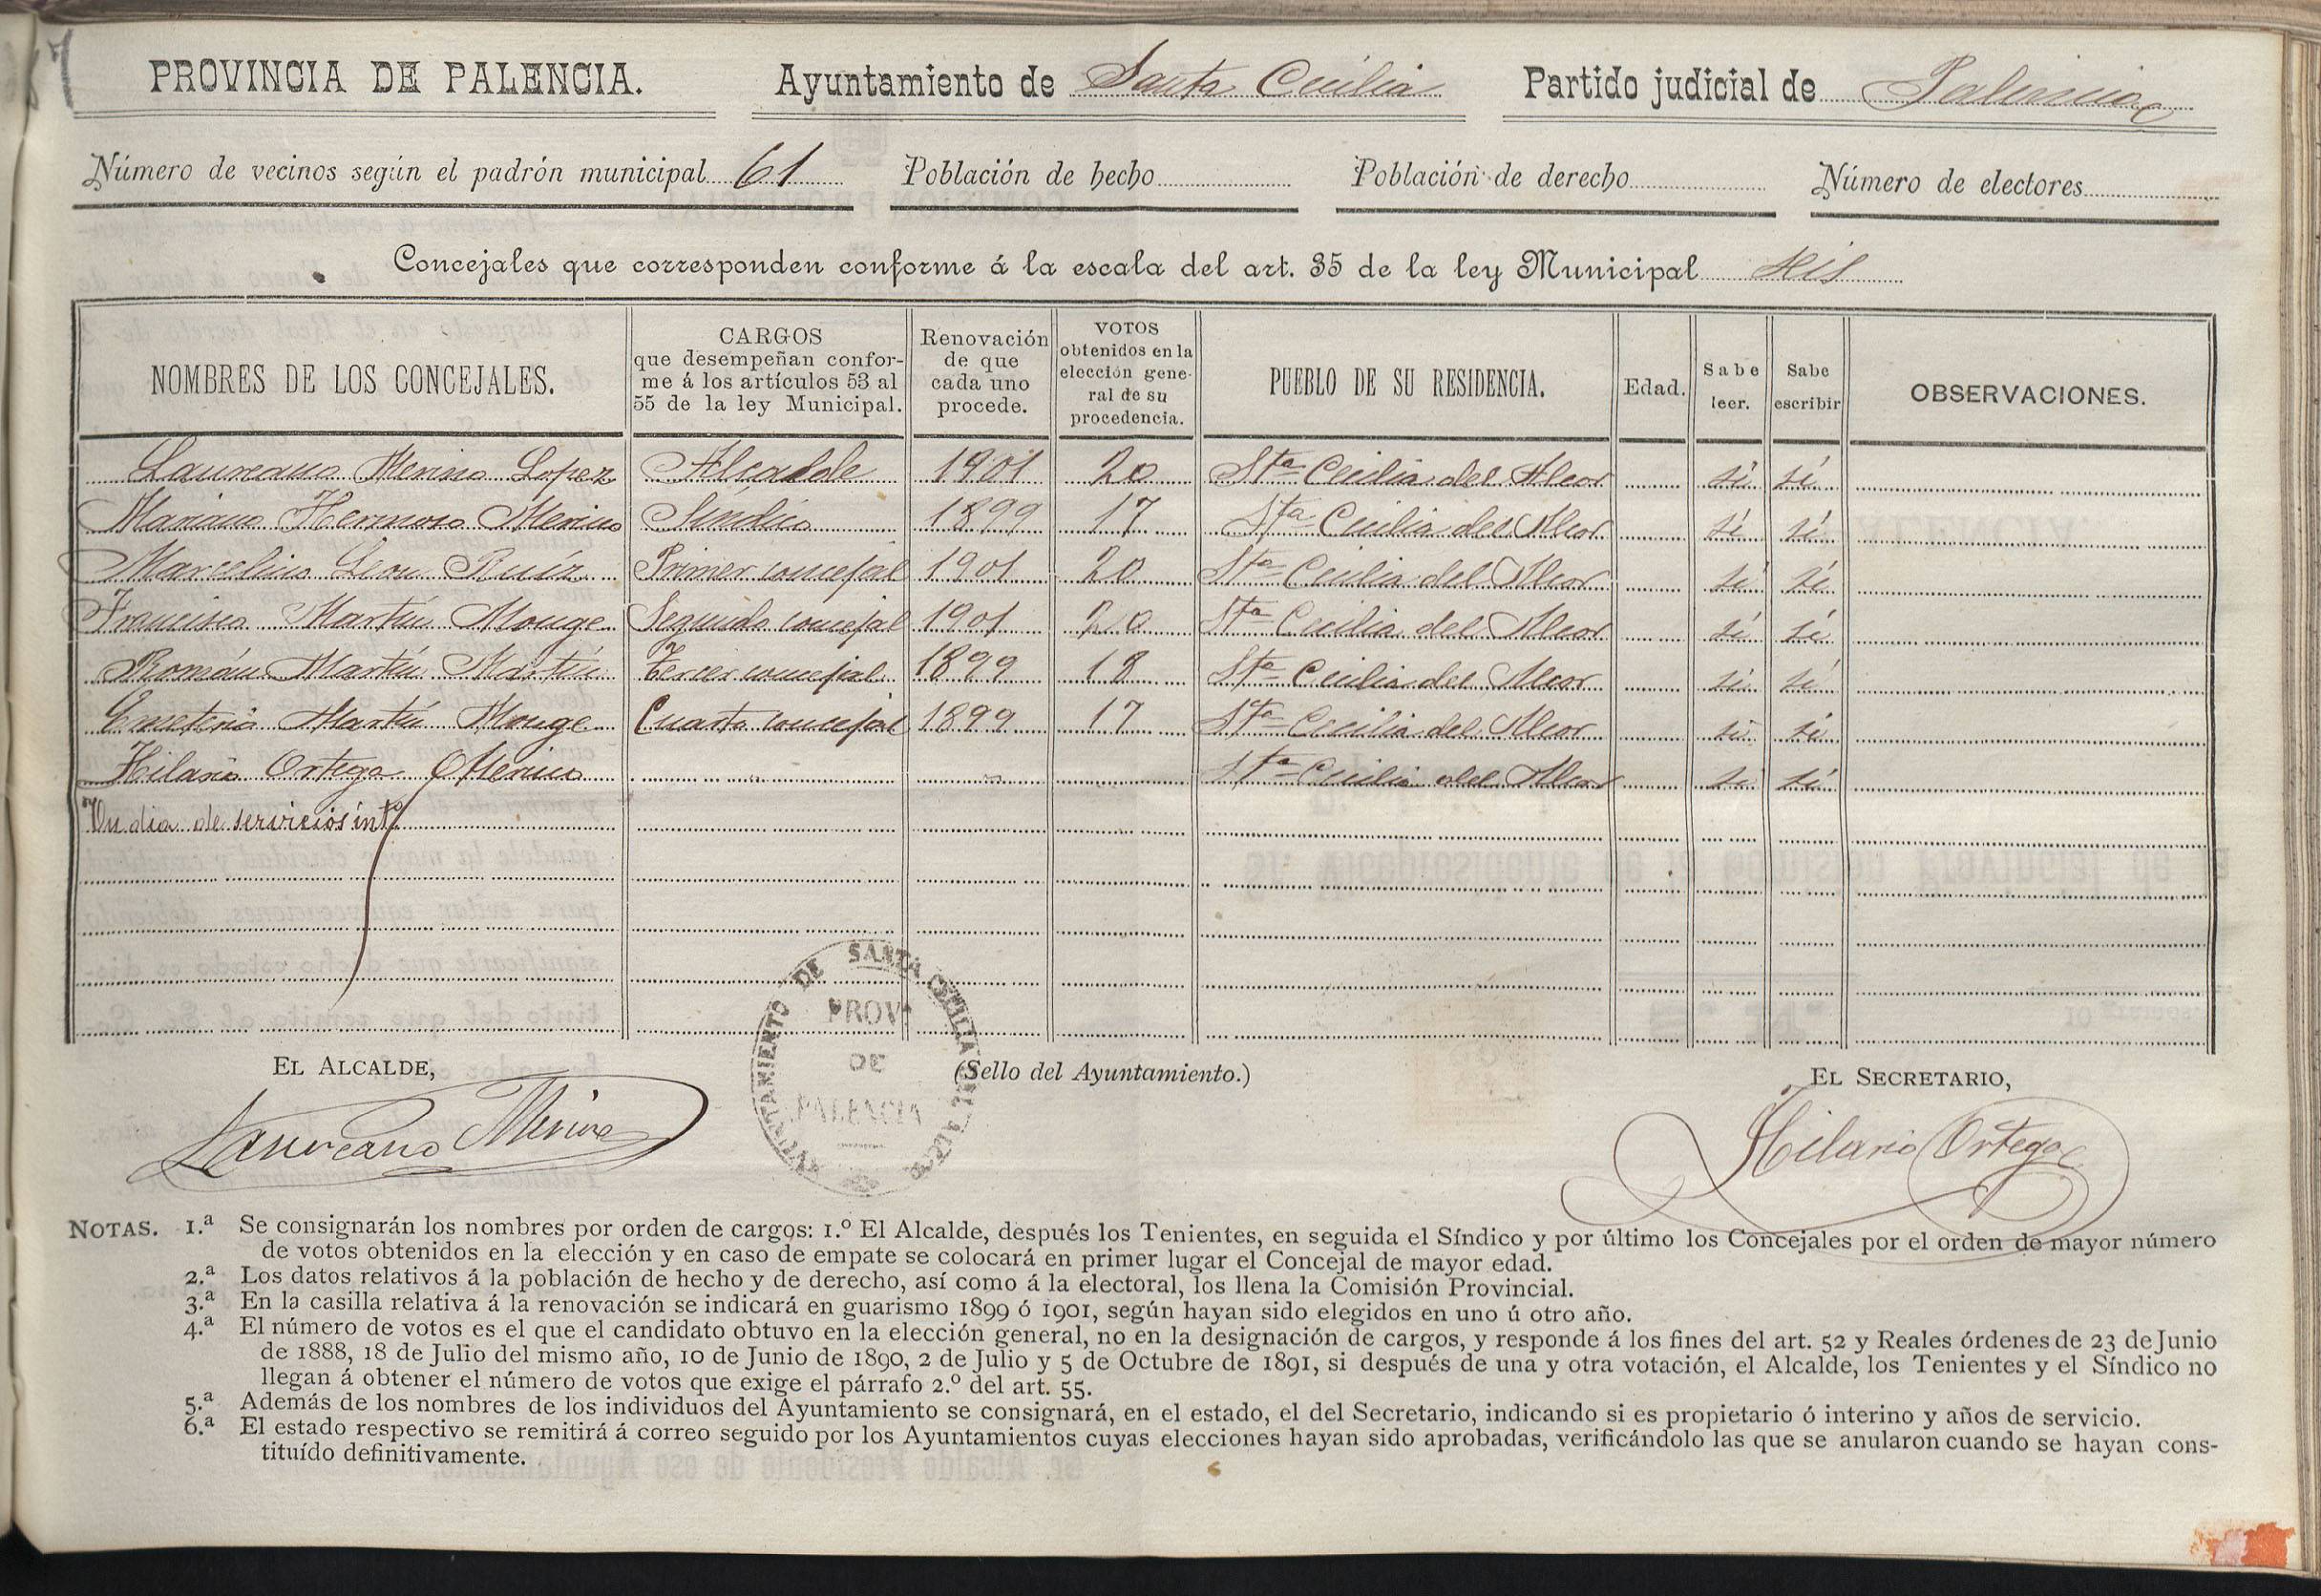 87
PROVINCIA DE PALENCIA. Ayuntamiento de Santa Cecilia Partido judicial de Palencia
Número de vecinos según el padrón municipal 61 Población de hecho Población de derecho Número de electores
Concejales que corresponden conforme á la escala del art. 35 de la ley Municipal seis
NOMBRES DE LOS CONCEJALES. CARGOS que desempeñan confor- me á los artículos 53 al 55 de la ley Municipal. Renovación de que cada uno procede. VOTOS obtenidos en la elección gene- ral de su procedencia. PUEBLO DE SU RESIDENCIA. Edad. Sabe leer. Sabe escribir OBSERVACIONES.
Laureano Merino Lopez Alcalde 1901 20 Sta Cecilia del Alcor si sí
Mariano Hermoso Merino Síndico 1899 17 Sta Cecilia del Alcor sí sí
Marcelino Leon Ruíz Primer concejal 1901 20 Sta Cecilia del Alcor sí sí
Francisco Martín Monge Segundo concejal 1901 20 Sta Cecilia del Alcor sí sí
Román Martín Martín Tercer concejal 1899 18 Sta Cecilia del Alcor si sí
Emeterio Martín Monge Cuarto concejal 1899 17 Sta Cecilia del Alcor si si
Hilario Ortega Merino Sta Cecilia del Alcor si sí
Un dia de servicios into
EL ALCALDE, (Sello del Ayuntamiento.) EL SECRETARIO,
AYUNTAMIENTO DE SANTA CECILIA DEL ALCOR
PROVA
DE
PALENCIA
Laureano Merino Hilario Ortega
NOTAS. 1.ª Se consignarán los nombres por orden de cargos: 1.º El Alcalde, después los Tenientes, en seguida el Síndico y por último los Concejales por el orden de mayor número
de votos obtenidos en la elección y en caso de empate se colocará en primer lugar el Concejal de mayor edad.
2.ª Los datos relativos á la población de hecho y de derecho, así como á la electoral, los llena la Comisión Provincial.
3.ª En la casilla relativa á la renovación se indicará en guarismo 1899 ó 1901, según hayan sido elegidos en uno ú otro año.
4.ª El número de votos es el que el candidato obtuvo en la elección general, no en la designación de cargos, y responde á los fines del art. 52 y Reales órdenes de 23 de Junio
de 1888, 18 de Julio del mismo año, 10 de Junio de 1890, 2 de Julio y 5 de Octubre de 1891, si después de una y otra votación, el Alcalde, los Tenientes y el Síndico no
llegan á obtener el número de votos que exige el párrafo 2.º del art. 55.
5.ª Además de los nombres de los individuos del Ayuntamiento se consignará, en el estado, el del Secretario, indicando si es propietario ó interino y años de servicio.
6.ª El estado respectivo se remitirá á correo seguido por los Ayuntamientos cuyas elecciones hayan sido aprobadas, verificándolo las que se anularon cuando se hayan cons-
tituído definitivamente.